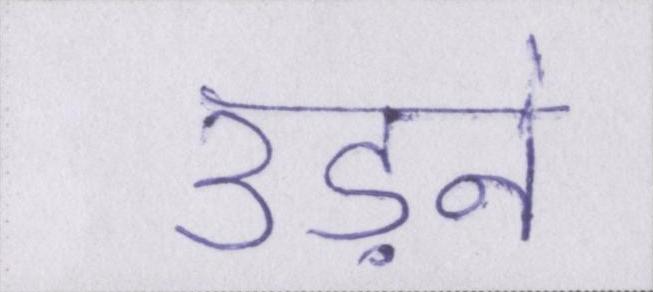 उड़ने